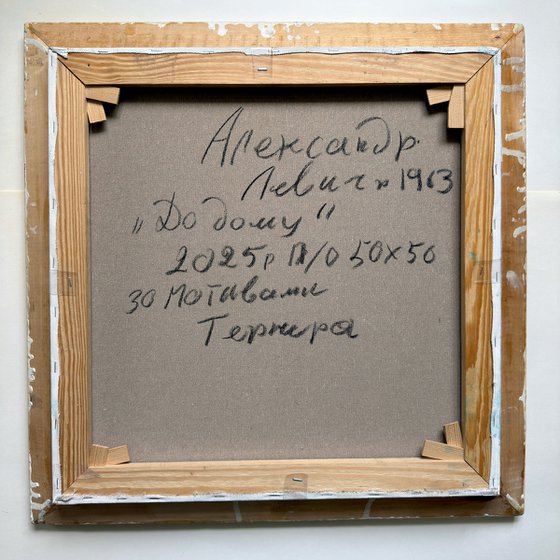 Александр
Левич н 1963
„До дому"
2025р П/О 50х50
за Мотивами
Тернера